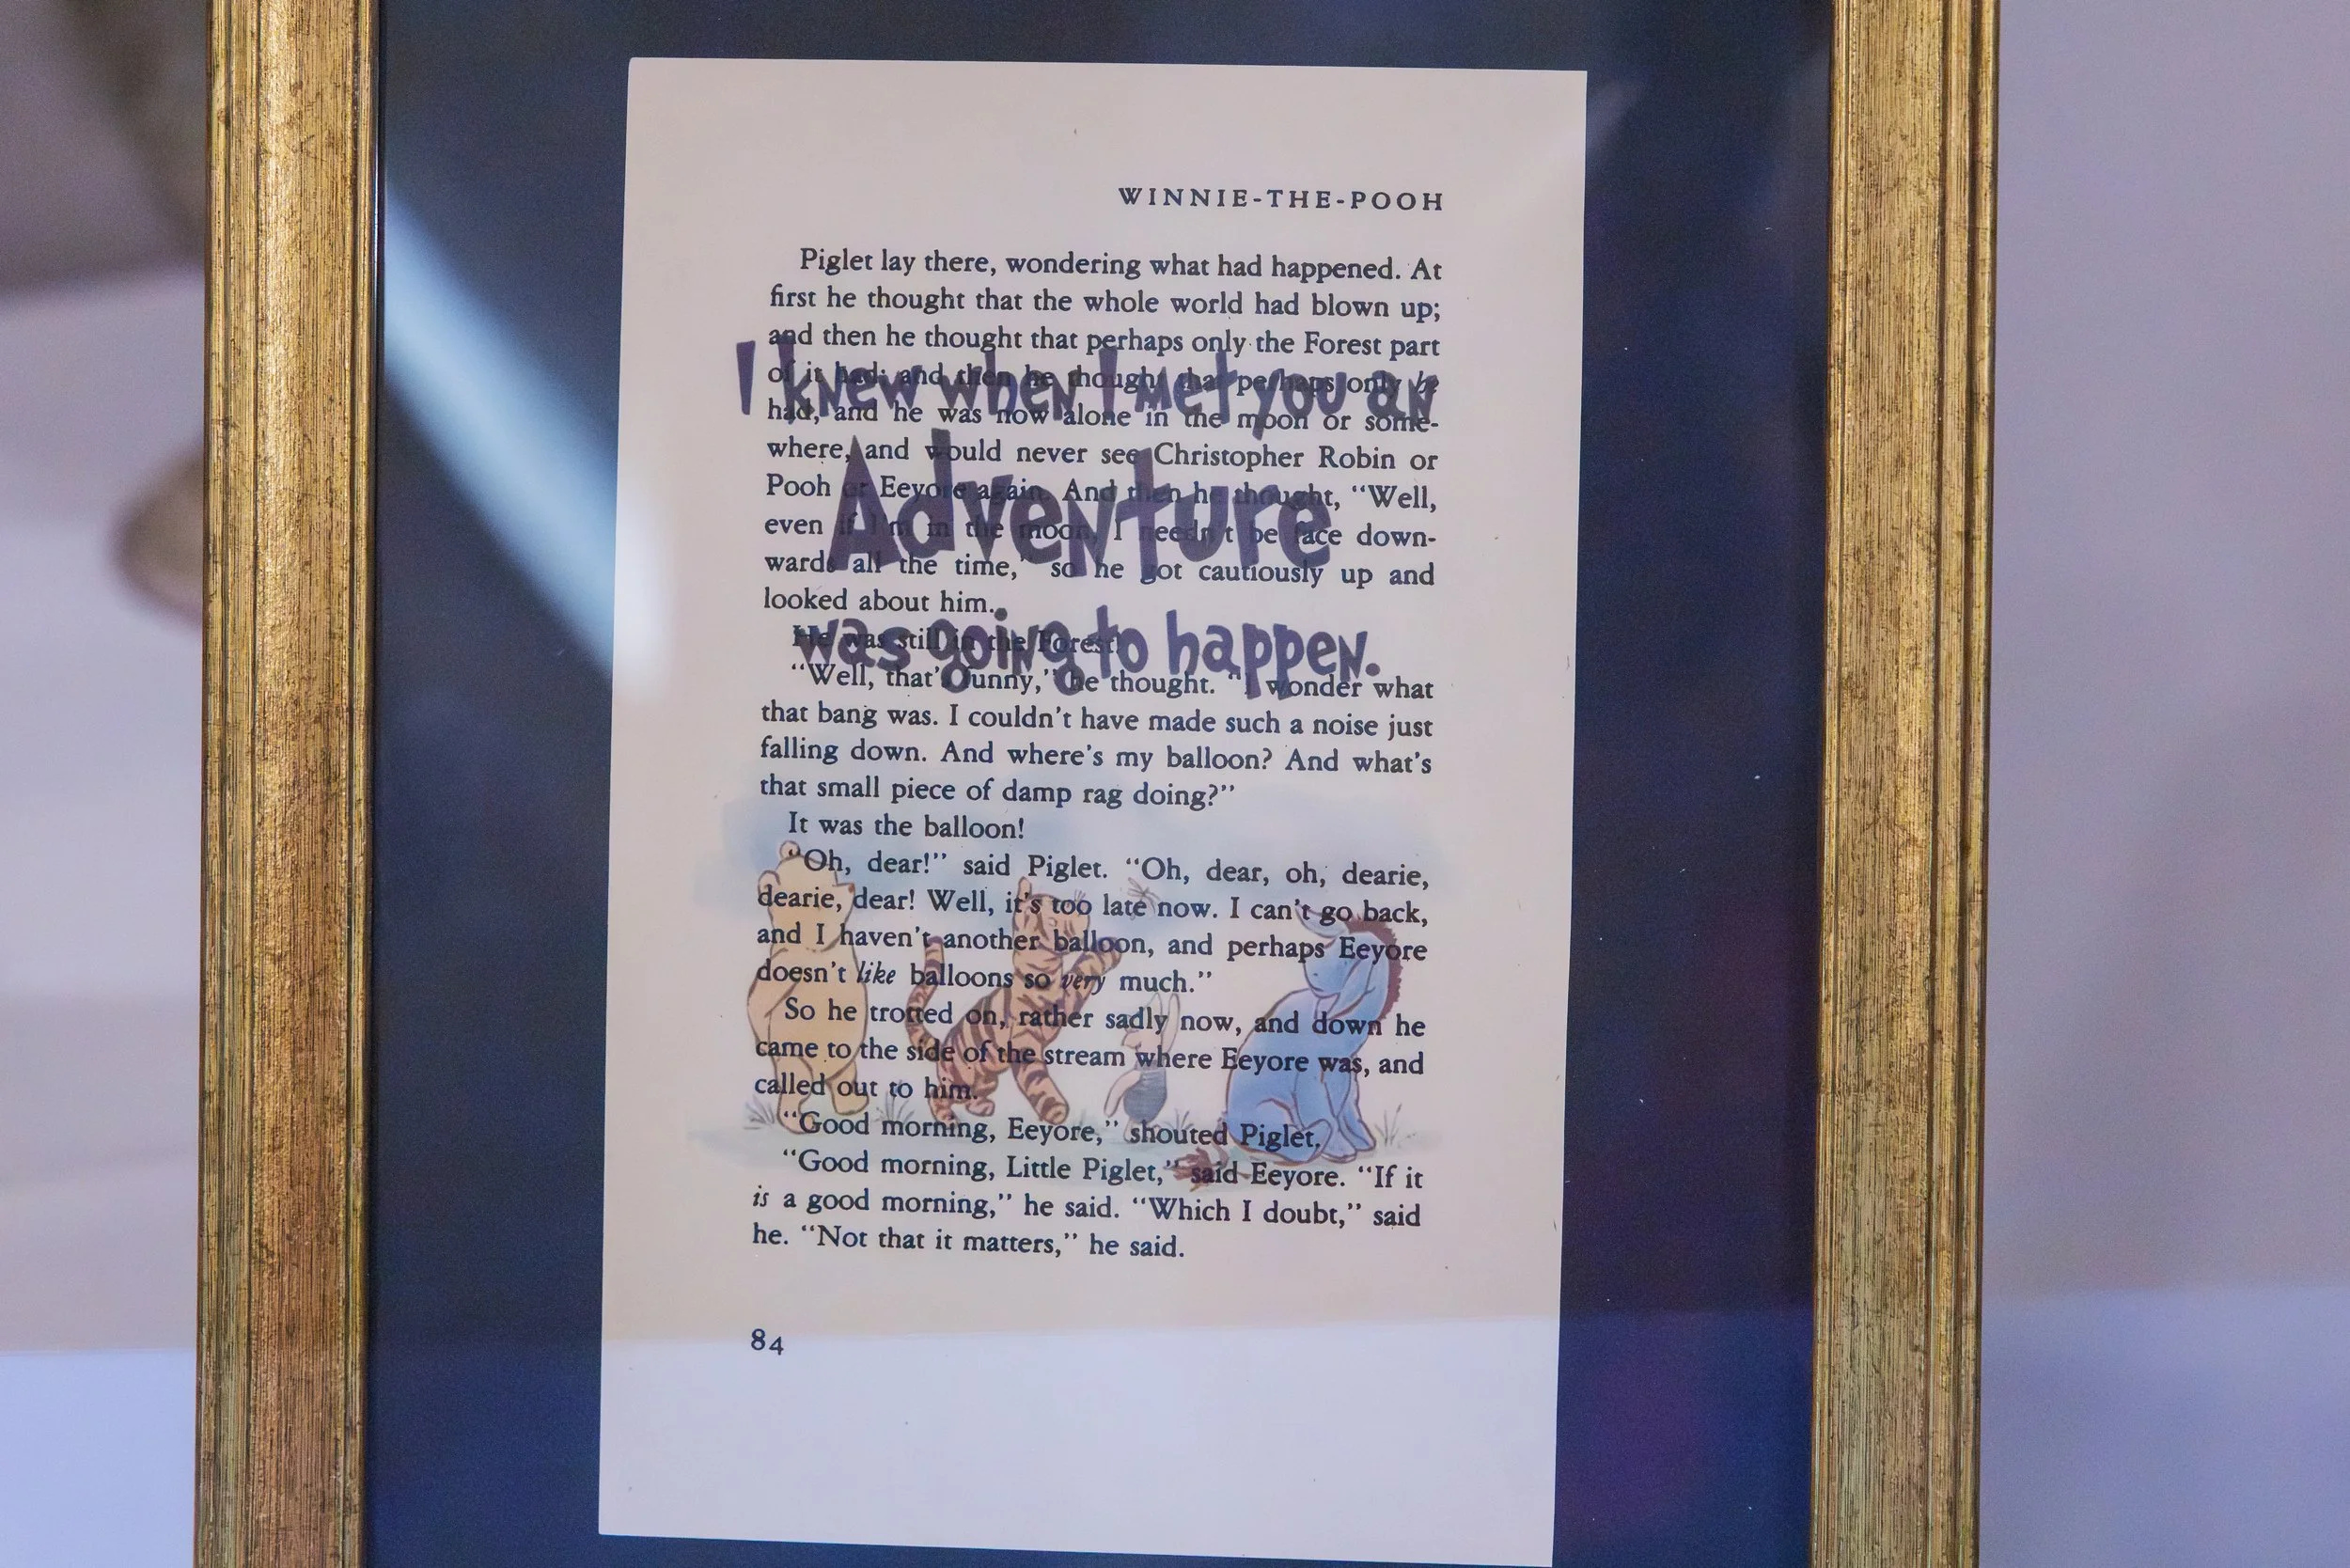 WINNIE-THE-POOH
Piglet lay there, wondering what had happened. At
first he thought that the whole world had blown up;
and then he thought that perhaps only the Forest part
of it had; and then he thought that perhaps only he
had, and he was now alone in the moon or some-
where, and would never see Christopher Robin or
Pooh or Eeyore again. And then he thought, “Well,
even if I'm in the moon, I needn't be face down-
wards all the time,” so he got cautiously up and
looked about him.
He was still in the Forest!
“Well, that's funny,” he thought. “I wonder what
that bang was. I couldn't have made such a noise just
falling down. And where's my balloon? And what's
that small piece of damp rag doing?”
It was the balloon!
“Oh, dear!” said Piglet. “Oh, dear, oh, dearie,
dearie, dear! Well, it's too late now. I can't go back,
and I haven't another balloon, and perhaps Eeyore
doesn't like balloons so very much.”
So he trotted on, rather sadly now, and down he
came to the side of the stream where Eeyore was, and
called out to him.
“Good morning, Eeyore,” shouted Piglet.
“Good morning, Little Piglet,” said Eeyore. “If it
is a good morning,” he said. “Which I doubt,” said
he. “Not that it matters,” he said.
84
I knew when I met you an
Adventure
was going to happen.